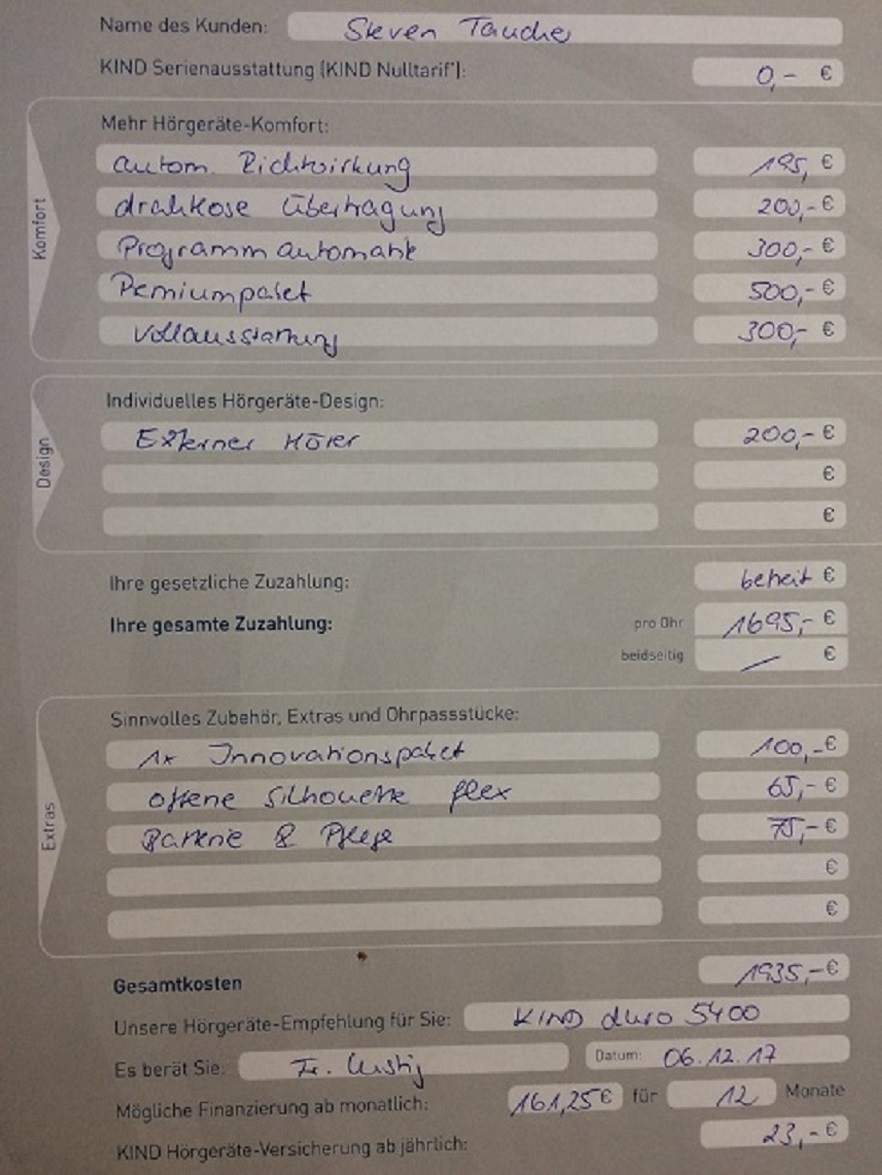 Name des Kunden: Steven Taucher
KIND Serienausstattung (KIND Nulltarif*): 0,- €
Mehr Hörgeräte-Komfort:
Komfort
autom. Richtwirkung 195, €
drahtlose Übertragung 200,- €
Programmautomatik 300,- €
Pemiumpaket 500,- €
Vollausstattung 300,- €
Individuelles Hörgeräte-Design:
Design
Externer Hörer 200,- €
€
€
Ihre gesetzliche Zuzahlung: befreit €
Ihre gesamte Zuzahlung: pro Ohr 1695,- €
beidseitig — €
Sinnvolles Zubehör, Extras und Ohrpassstücke:
Extras
1x Innovationspaket 100,- €
offene Silhouette flex 65,- €
Batterie & Pflege 75,- €
€
€
Gesamtkosten 1935,- €
Unsere Hörgeräte-Empfehlung für Sie: KIND duro 5400
Es berät Sie: Fr. Lustig Datum: 06.12.17
Mögliche Finanzierung ab monatlich: 161,25€ für 12 Monate
KIND Hörgeräte-Versicherung ab jährlich: 23,- €